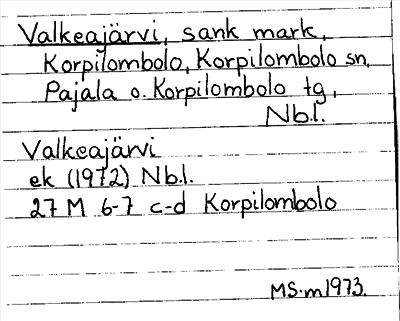 Valkeajärvi, sank mark,
Korpilombolo, Korpilombolo sn,
Pajala o. Korpilombolo tg,
Nb.l.
Valkeajärvi
ek (1972) Nb.l.
27 M 6-7 c-d Korpilombolo
MS.m1973.